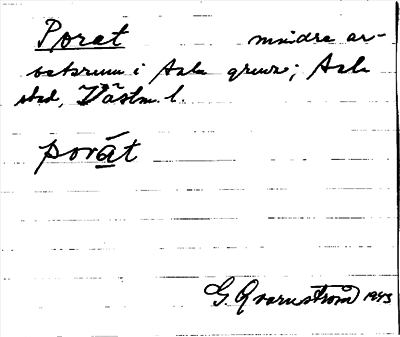 Porat mindre ar-
betsrum i Sala gruva; Sala
stad, Västm. l.
porát
G. Qvarnström 1943